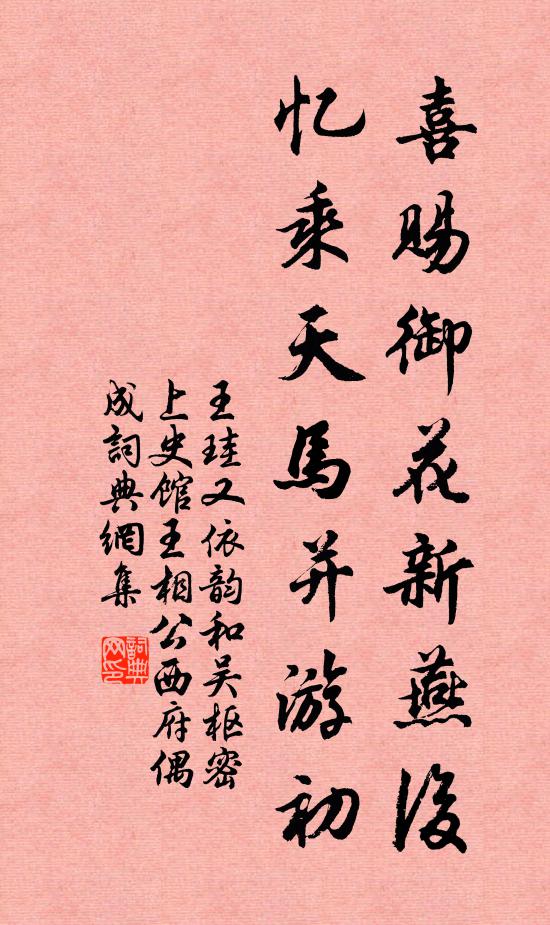 喜赐御花新燕後
忆乘天馬并游初
王珪又依韵和吴枢密
上史馆王相公西府偶
成詞典網集
詞典网印